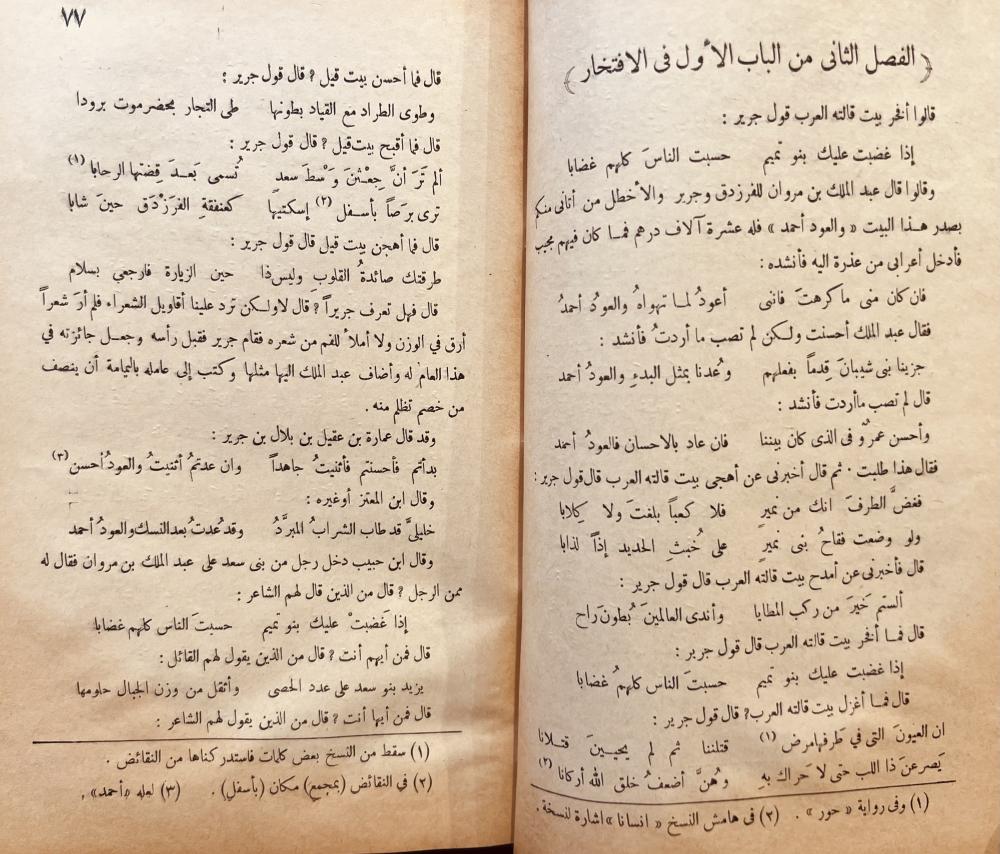 ﴿ الفصل الثانى من الباب الأول فى الافتخار ﴾
قالوا أفخر بيت قالته العرب قول جرير :
إذا غضبت عليك بنو تميم حسبت الناسَ كلهم غضابا
وقالوا قال عبد الملك بن مروان للفرزدق وجرير والأخطل من أتانى منكم
بصدر هذا البيت « والعود أحمد » فله عشرة آلاف درهم فما كان فيهم مجيب
فأدخل أعرابى من عذرة اليه فأنشده :
فان كان منى ما كرهتَ فاننى أعودُ لما تهواهُ والعودُ أحمدُ
فقال عبد الملك أحسنت ولكن لم تصب ما أردتُ فأنشد :
جزينا بنى شيبانَ قِدماً بفعلهم وعُدنا بمثل البدءِ والعودُ أحمد
قال لم تصب ماأردت فأنشد :
وأحسن عمرٌو فى الذى كان بيننا فان عاد بالاحسان فالعودُ أحمد
فقال هذا طلبت . ثم قال أخبرنى عن أهجى بيت قالته العرب قال قول جرير :
فغضَّ الطرفَ انك من نميرٍ فلا كعباً بلغتَ ولا كِلابا
ولو وضعت فقاحُ بنى نميرٍ على خُبثِ الحديد إذاً لذابا
قال فأخبرنى عن أمدح بيت قالته العرب قال قول جرير :
ألستم خَيرَ من ركب المطايا وأندى العالمينَ بُطونَ راح
قال فما أفخر بيت قالته العرب قال قول جرير :
إذا غضبت عليك بنو تميم حسبت الناسَ كلهمُ غضابا
قال فما أغزل بيت قالته العرب؟ قال قول جرير :
ان العيونَ التى فى طَرفها مرض (١) قتلننا ثم لم يحيينَ قتلانا
يَصرعنَ ذا اللب حتى لا حَراك بهِ وهُنَّ أضعفُ خلق الله أركانا (٢)
(١) وفى رواية « حور » . (٢) فى هامش النسخ « انسانا » اشارة لنسخة .
٧٧
قال فما أحسن بيت قيل ؟ قال قول جرير :
وطوى الطراد مع القياد بطونها طى التجار بحضرموت برودا
قال فما أقبح بيت قيل ؟ قال قول جرير :
ألم تَرَ أنَّ جِعْثنَ وَسْطَ سعد تُسمى بَعدَ قِضتها الرحابا (١)
ترى برَصاً بأسفل (٢) إسكتيها كعنفقةِ الفرَزْدَق حينَ شابا
قال فما أهجن بيت قيل قال قول جرير :
طرقتك صائدةُ القلوب وليس ذا حين الزيارة فارجعى بسلام
قال فهل تعرف جريراً ؟ قال لا ولكن ترد علينا أقاويل الشعراء فلم أرَ شعراً
أرق في الوزن ولا أملأ للفم من شعره فقام جرير فقبل رأسه وجعل جائزته في
هذا العام له وأضاف عبد الملك اليها مثلها وكتب إلى عامله باليمامة أن ينصف
من خصم تظلم منه .
وقد قال عمارة بن عقيل بن بلال بن جرير :
بدأتم فأحسنتم فأثنيتُ جاهداً وان عدتمُ أثنيتُ والعودُ أحسن (٣)
وقال ابن المعتز أو غيره :
خليلىَّ قد طاب الشرابُ المبرَّدُ وقد عُدتُ بعد النسك والعودُ أحمد
وقال ابن حبيب دخل رجل من بنى سعد على عبد الملك بن مروان فقال له
ممن الرجل ؟ قال من الذين قال لهم الشاعر :
إذا غَضبتْ عليك بنو تميم حسبتَ الناس كلهم غضابا
قال فمن أيهم أنت ؟ قال من الذين يقول لهم القائل :
يزيد بنو سعد على عدد الحصى وأثقل من وزن الجبال حلومها
قال فمن أيها أنت ؟ قال من الذين يقول لهم الشاعر :
(١) سقط من النسخ بعض كلمات فاستدركناها من النقائض .
(٢) في النقائض (بمجمع) مكان (بأسفل) . (٣) لعله «أحمد» .